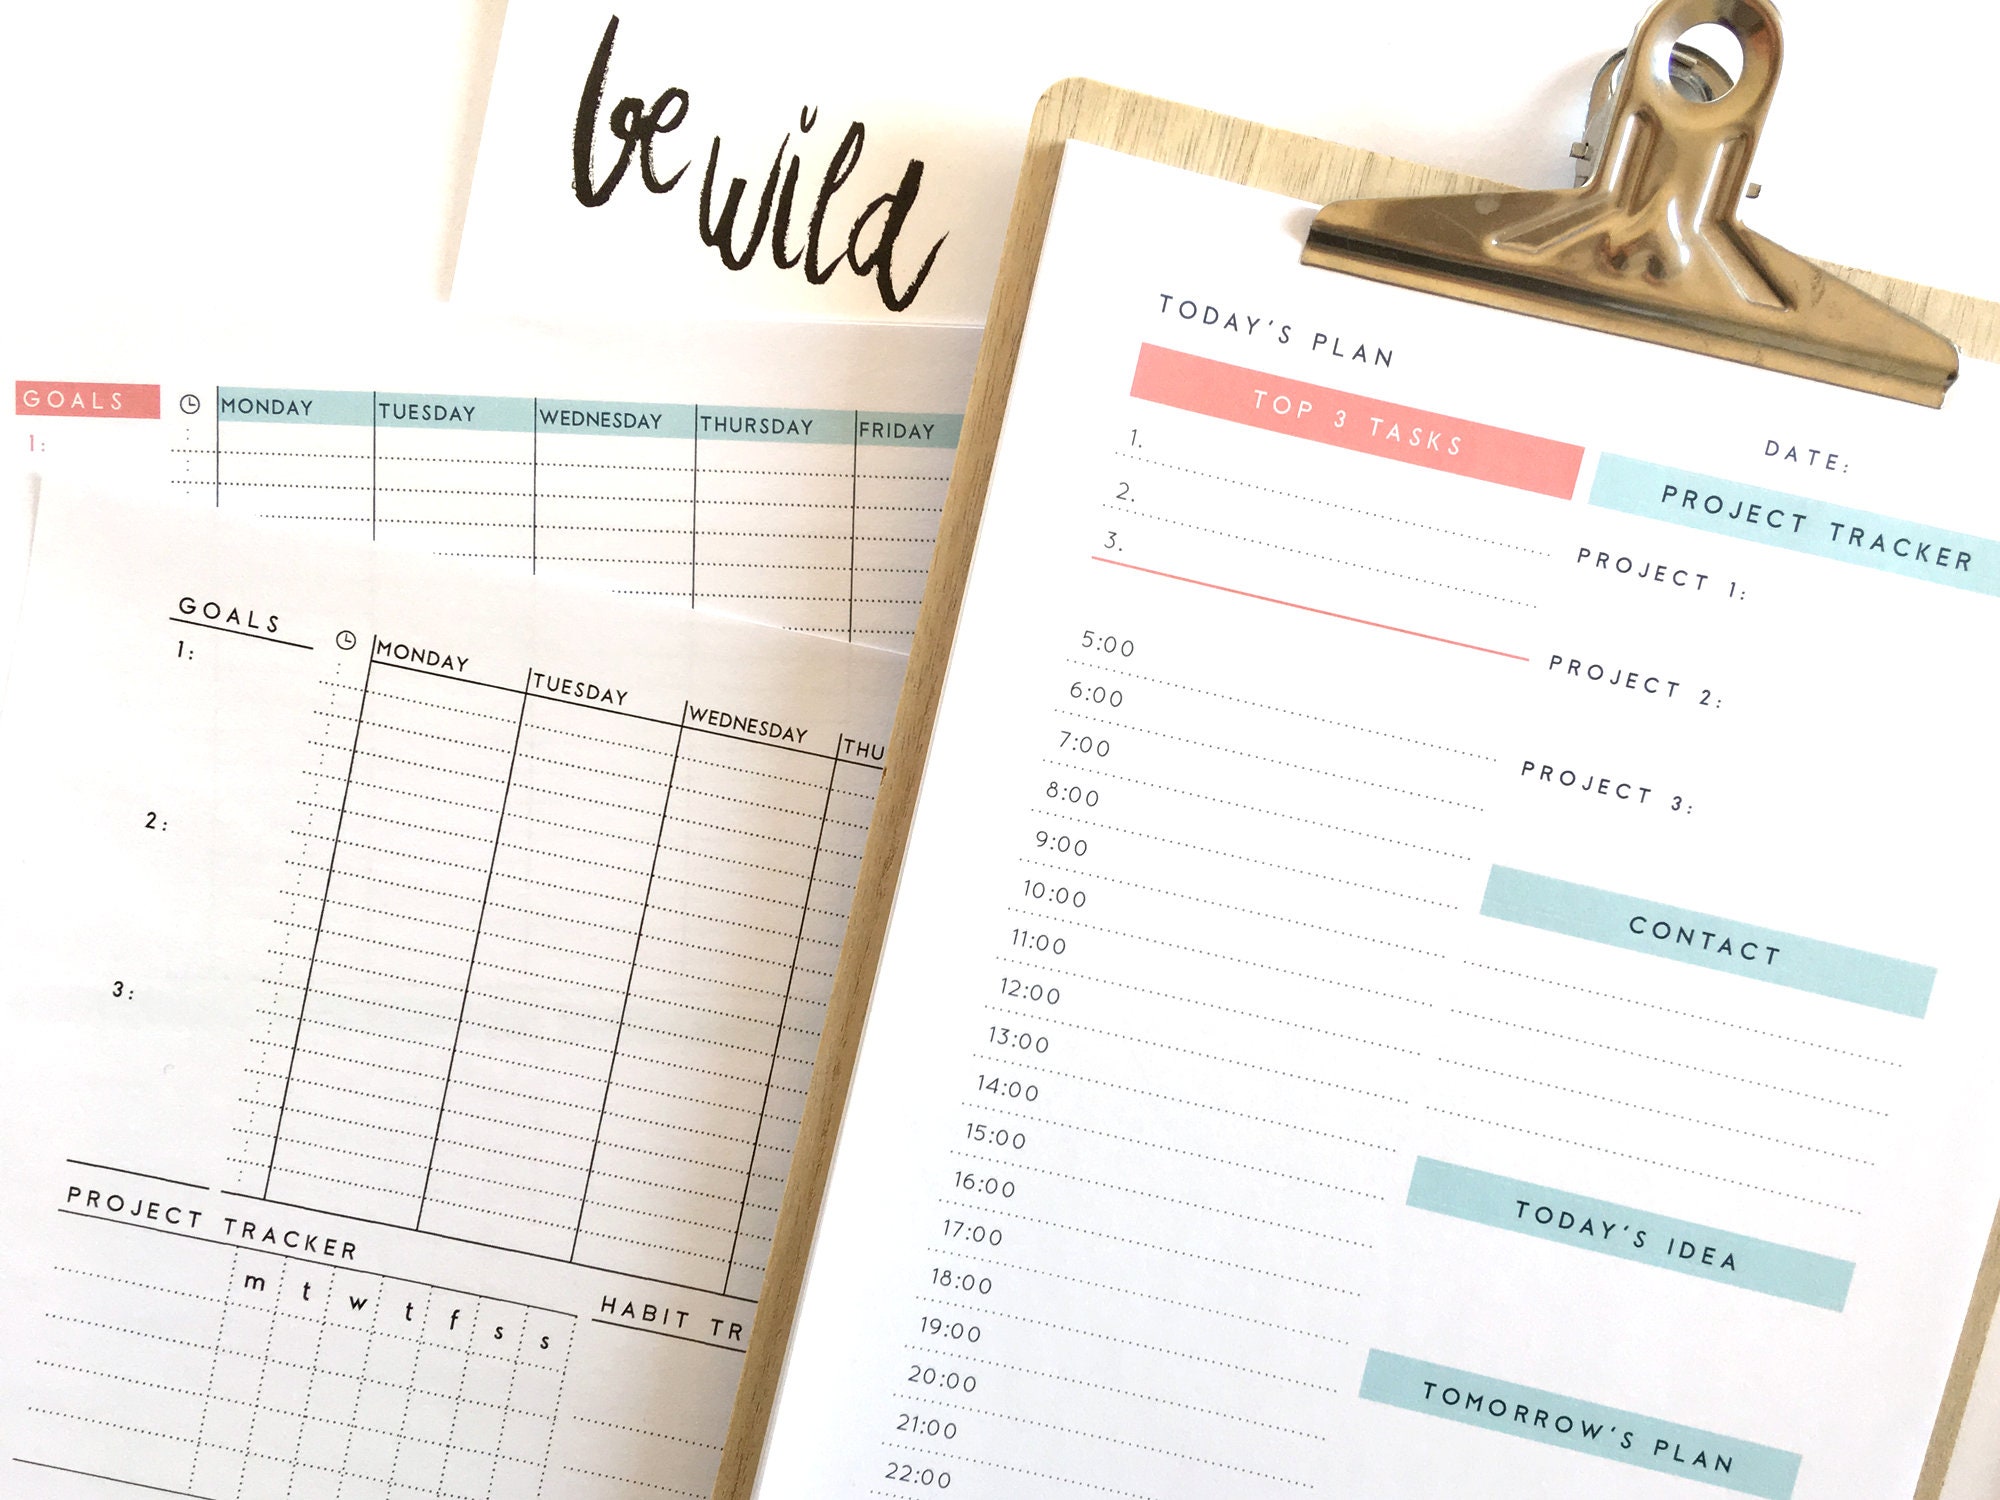 be wild
GOALS
MONDAY TUESDAY WEDNESDAY THURSDAY FRIDAY
1:
GOALS
MONDAY TUESDAY WEDNESDAY THU
1:
2:
3:
PROJECT TRACKER
m t w t f s s
HABIT TR
TODAY'S PLAN
DATE:
TOP 3 TASKS
1.
2.
3.
5:00
6:00
7:00
8:00
9:00
10:00
11:00
12:00
13:00
14:00
15:00
16:00
17:00
18:00
19:00
20:00
21:00
22:00
PROJECT TRACKER
PROJECT 1:
PROJECT 2:
PROJECT 3:
CONTACT
TODAY'S IDEA
TOMORROW'S PLAN